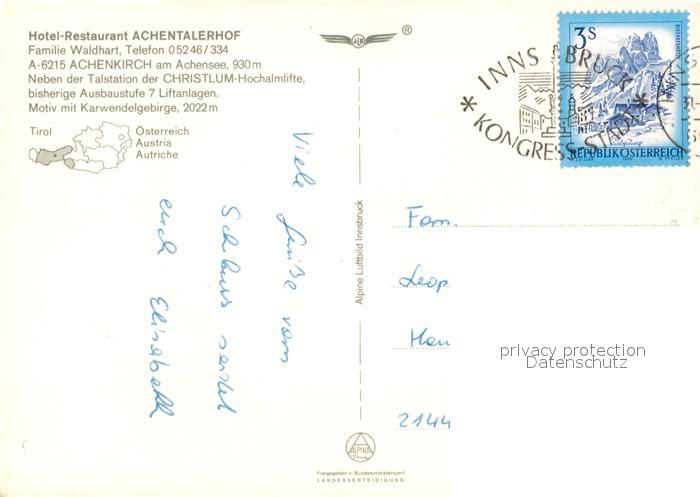 Hotel-Restaurant ACHENTALERHOF
Familie Waldhart, Telefon 05246/334
A-6215 ACHENKIRCH am Achensee, 930 m
Neben der Talstation der CHRISTLUM-Hochalmlifte,
bisherige Ausbaustufe 7 Liftanlagen.
Motiv mit Karwendelgebirge, 2022 m
Tirol
Österreich
Austria
Autriche
®
Viele Grüße vom
Schikurs sendet
euch Elisabeth
Alpine Luftbild Innsbruck
ALPINE
Freigegeben v. Bundesministerium f.
LANDESVERTEIDIGUNG
3 S
REPUBLIK ÖSTERREICH
* INNSBRUCK *
KONGRESS-STADT
INNS
Fam.
Leop
Hau
2144
privacy protection
Datenschutz